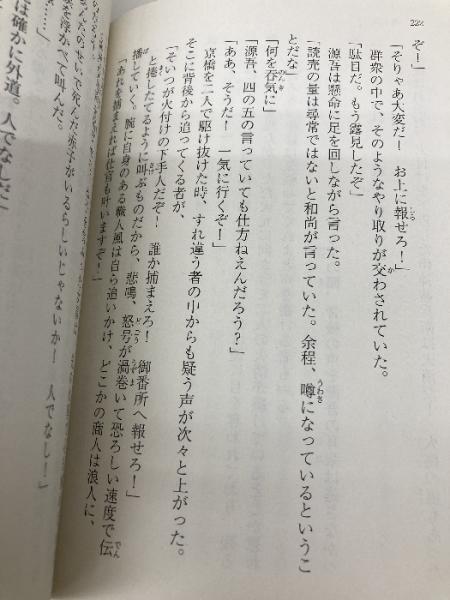 222
ぞ！」
「そりゃあ大変だ！　お上に報せろ！」
群衆の中で、そのようなやり取りが交わされていた。
「駄目だ。もう露見したぞ」
源吾は懸命に足を回しながら言った。
「読売の量は尋常ではないと和尚が言っていた。余程、噂になっているというこ
とだな」
「何を呑気に」
「源吾、四の五の言っていても仕方ねえんだろう？」
「ああ、そうだ！　一気に行くぞ！」
京橋を二人で駆け抜けた時、すれ違う者の中からも疑う声が次々と上がった。
そこに背後から追ってくる者が、
「そいつが火付けの下手人だぞ！　誰か捕まえろ！　御番所へ報せろ！」
と捲したてるように叫ぶものだから、悲鳴、怒号が渦巻いて恐ろしい速度で伝
播していく。腕に自身のある職人風は自ら追いかけ、どこかの商人は浪人に、
「あれを捕まえれば仕官も叶いますぞ！」
のせいで死んだ赤子がいるらしいじゃないか！　人でなし！」
を浮かべ叫んだ。
……」
は確かに外道。人でなしだ」